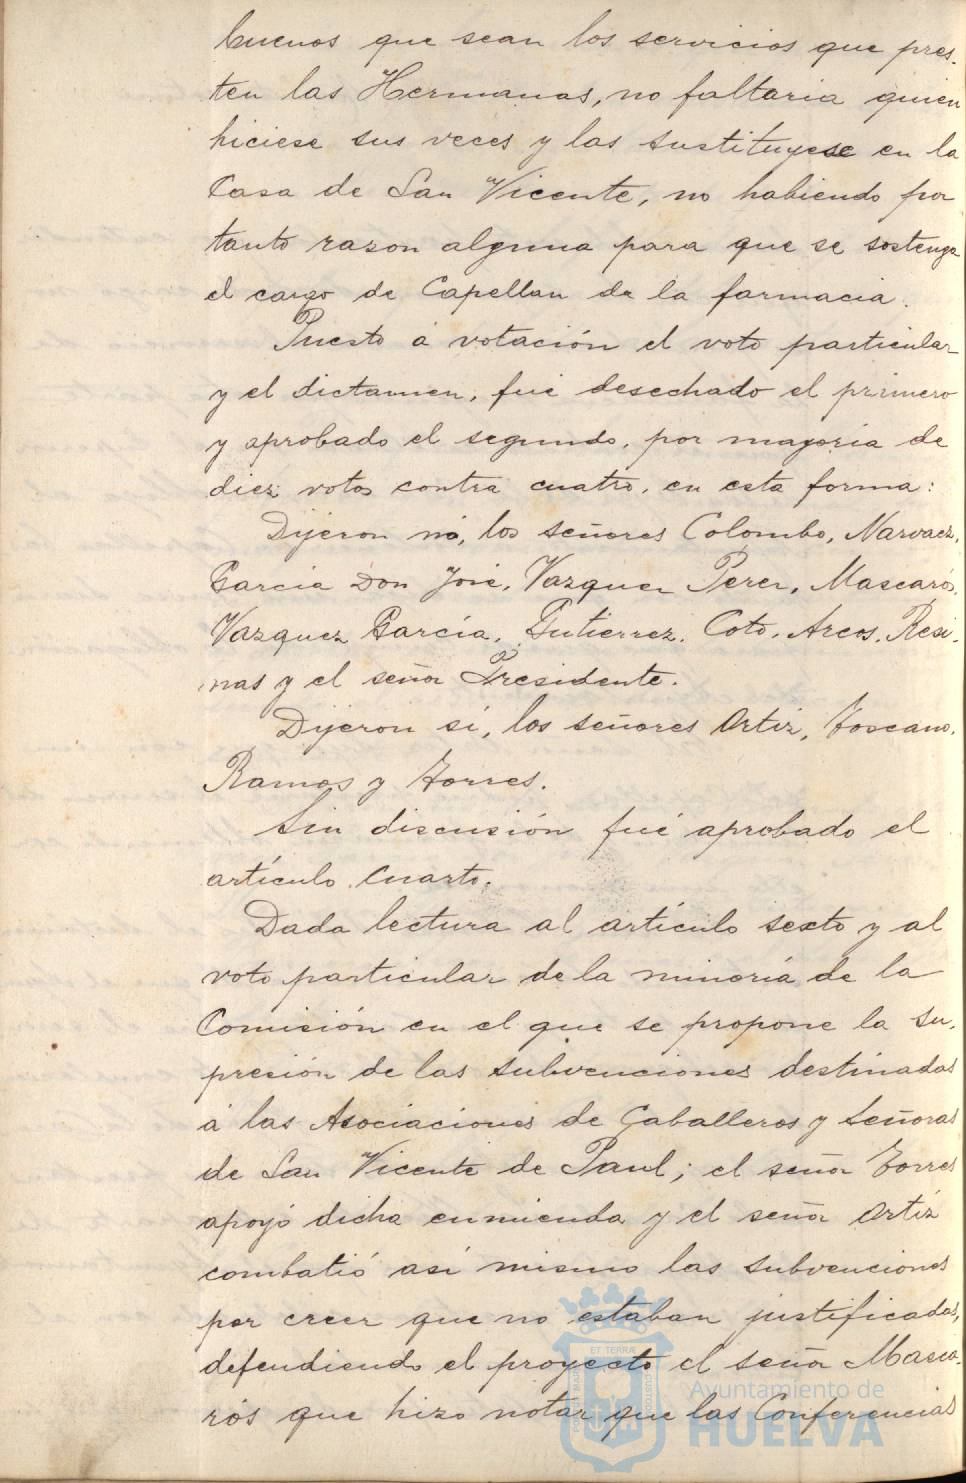 buenos que sean los servicios que pres-
ten las Hermanas, no faltaria quien
hiciese sus veces y las sustituyese en la
Casa de San Vicente, no habiendo por
tanto razon alguna para que se sostenga
el cargo de Capellan de la farmacia.
Puesto á votación el voto particular
y el dictamen, fué desechado el primero
y aprobado el segundo, por mayoria de
diez votos contra cuatro, en esta forma:
Dijeron nó, los señores Colombo, Narvaez,
Garcia Don José, Vazquez Perez, Mascarós,
Vazquez García, Gutierrez, Coto, Arcos, Resi-
nas y el señor Presidente.
Dijeron sí, los señores Ortiz, Toscano,
Ramos y Torres.
Sin discusión fué aprobado el
artículo cuarto.
Dada lectura al artículo sexto y al
voto particular de la minoría de la
Comisión en el que se propone la su-
presión de las subvenciones destinadas
á las Asociaciones de Caballeros y Señoras
de San Vicente de Paul; el señor Torres
apoyó dicha enmienda y el señor Ortiz
combatió así mismo las subvenciones
por creer que no estaban justificadas,
defendiendo el proyecto el señor Masca-
rós que hizo notar que las Conferencias
ET TERRÆ
PORTUS MARIS
CUSTODIA
Ayuntamiento de
HUELVA